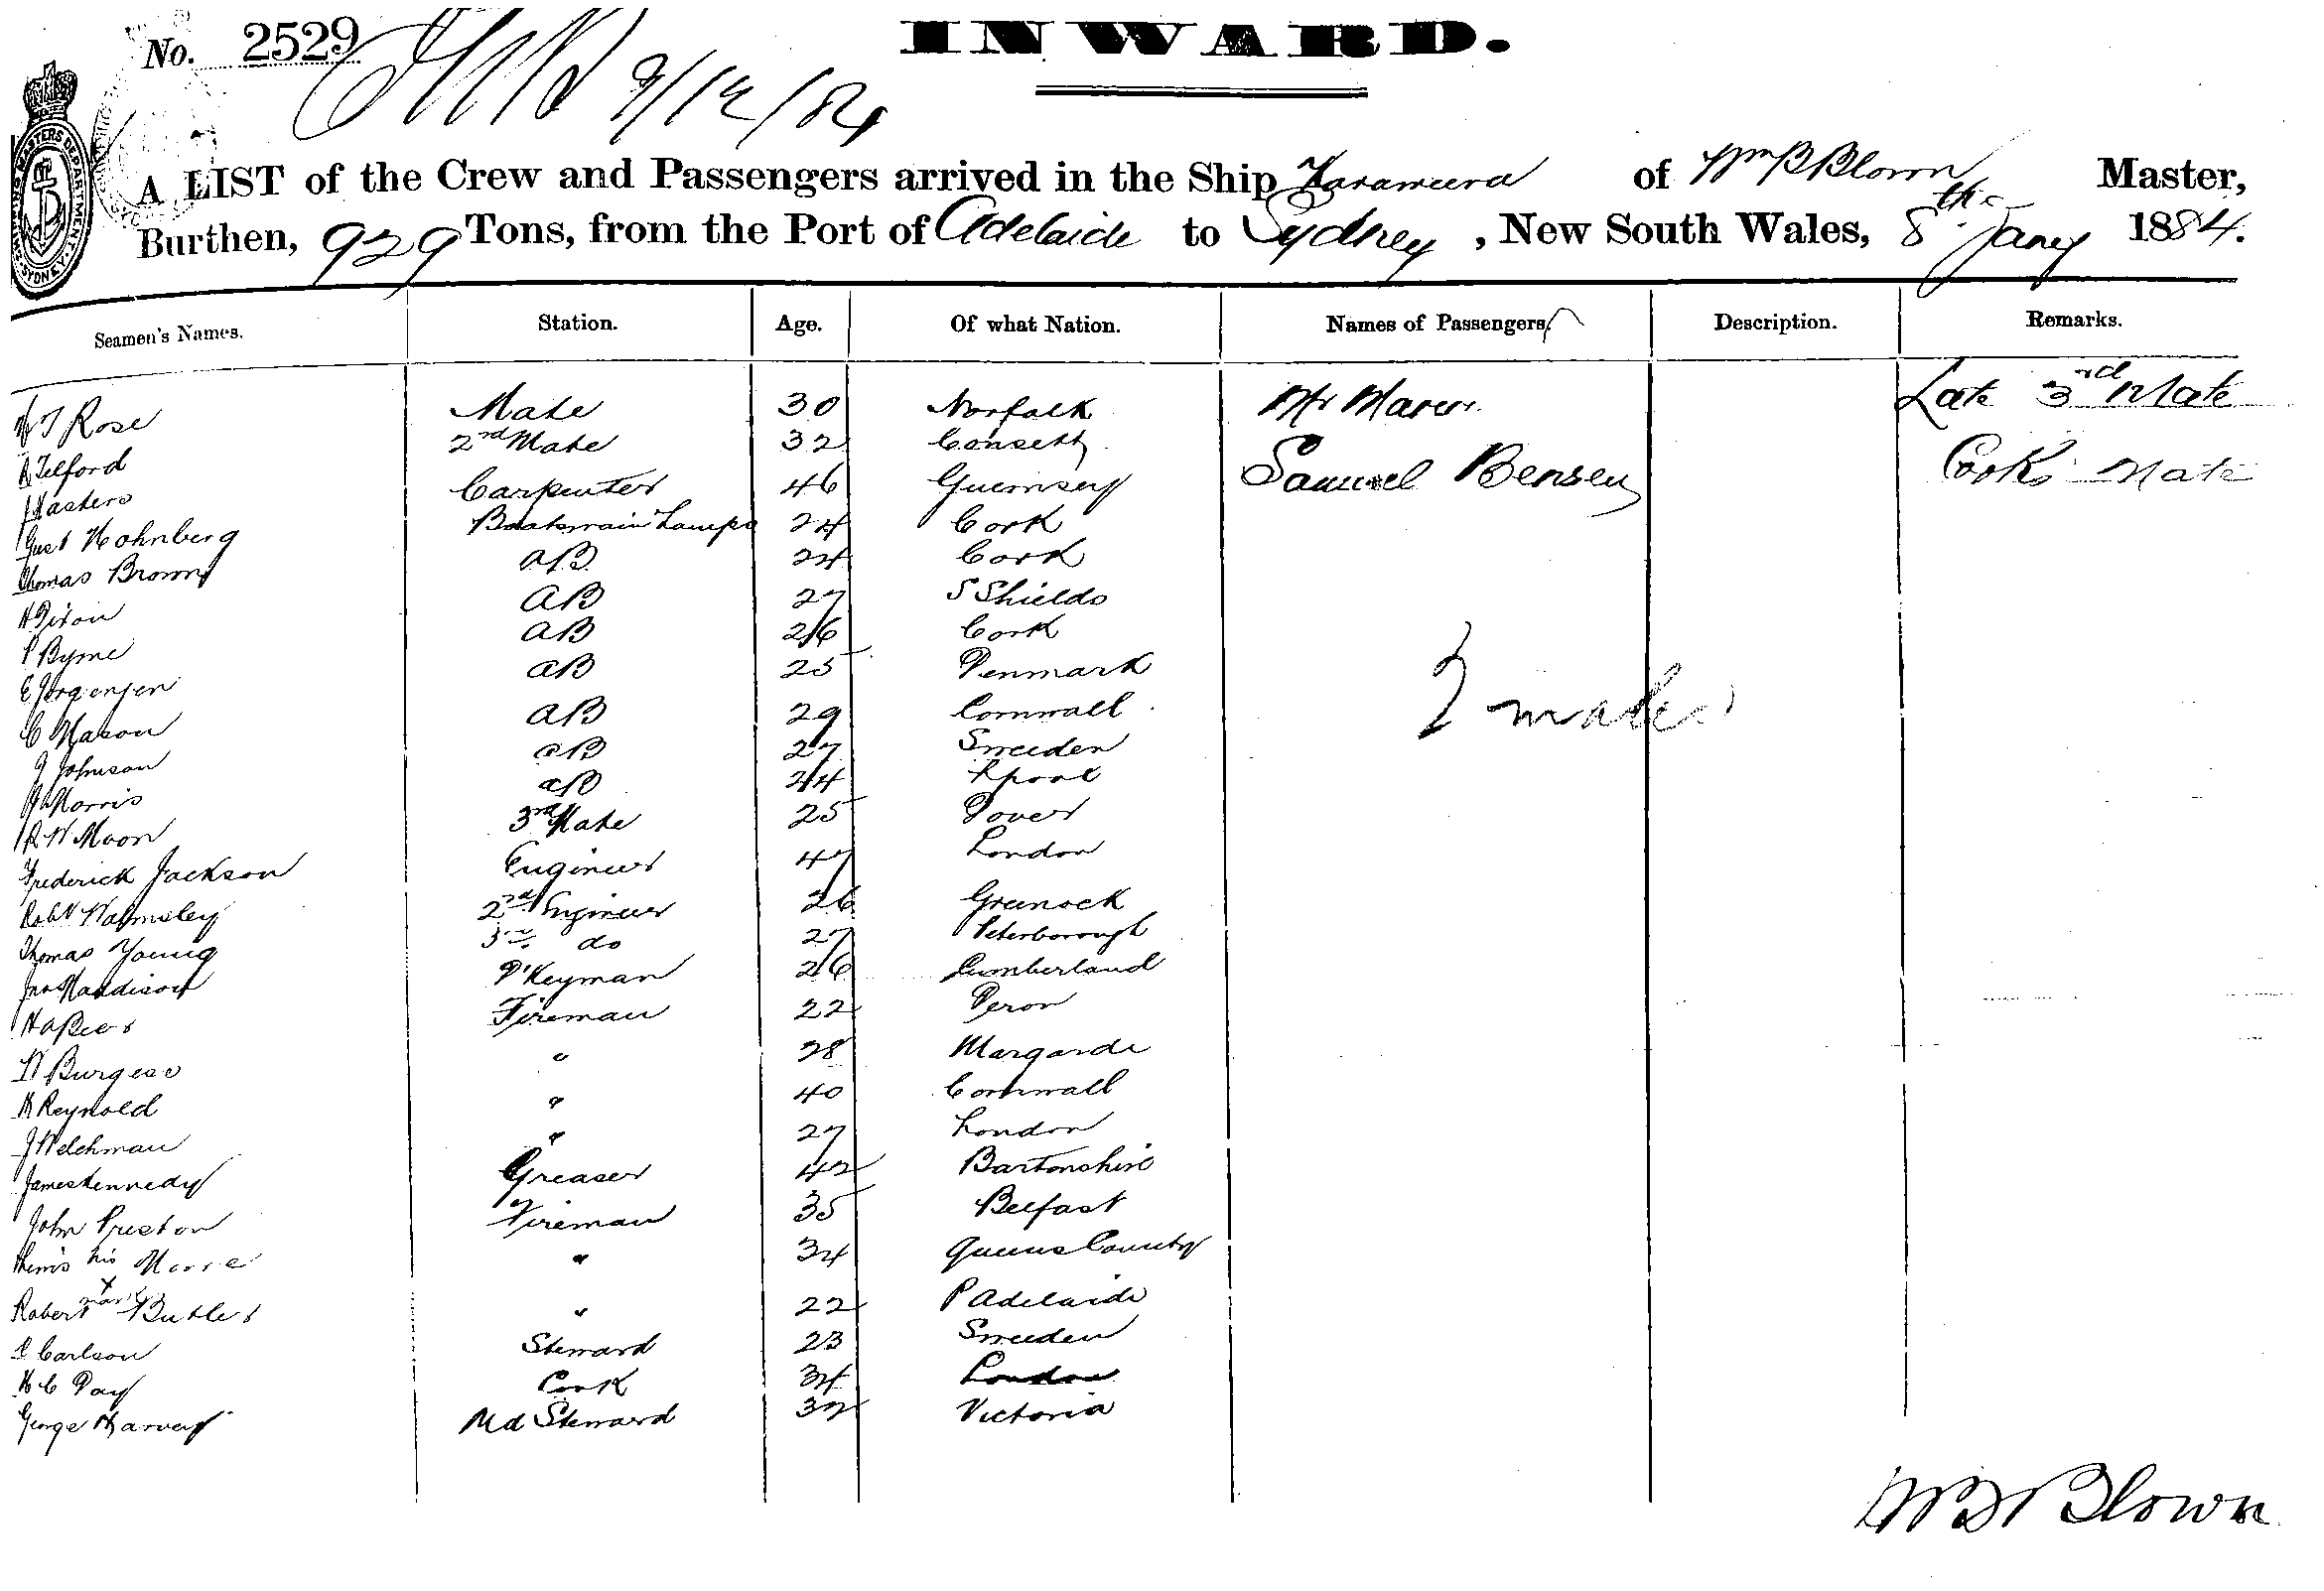 No. 2529
INWARD.
9/1/84
A LIST of the Crew and Passengers arrived in the Ship of Wm B Blown Master,
Burthen, 929 Tons, from the Port of Adelaide to Sydney, New South Wales, 8th Jany 1884.
Seamen's Names. Station. Age. Of what Nation. Names of Passengers. Description. Remarks.
Rose Mate 30 Norfolk Mr Late 3rd Mate
Telford 2nd Mate 32 Consett Samuel Bensen Cooks Mate
Masters Carpenter 46 Guernsey
Gust Hohnberg Boatswain Lamps 24 Cork
Thomas Brown AB 24 Cork
H Dixon AB 27 S Shields
P Byrne AB 26 Cork
E Jorgensen AB 25 Denmark
C Mason AB 29 Cornwall
J Johnson AB 27 Sweeden
Morris AB 24 Lpool
R W Moon 3rd Mate 25 Dover
2 males
Frederick Jackson Engineer 47 London
Robt Walmsley 2nd Engineer 26 Greenock
Thomas Young 3rd do 27 Peterborough
Jno Maddison D'Keyman 26 Cumberland
Fireman 22
W Burgess " 28 Margarde
Reynold " 40 Cornwall
J Welchman " 27 London
James Kennedy Greaser 42 Bartonshire
John Preston Fireman 35 Belfast
his " 34 Queens County
Robert x mark Butler " 22 P Adelaide
Carlson Steward 23 Sweeden
H C Day Cook 34 London
George Harvey Md Steward 32 Victoria
W B Blown